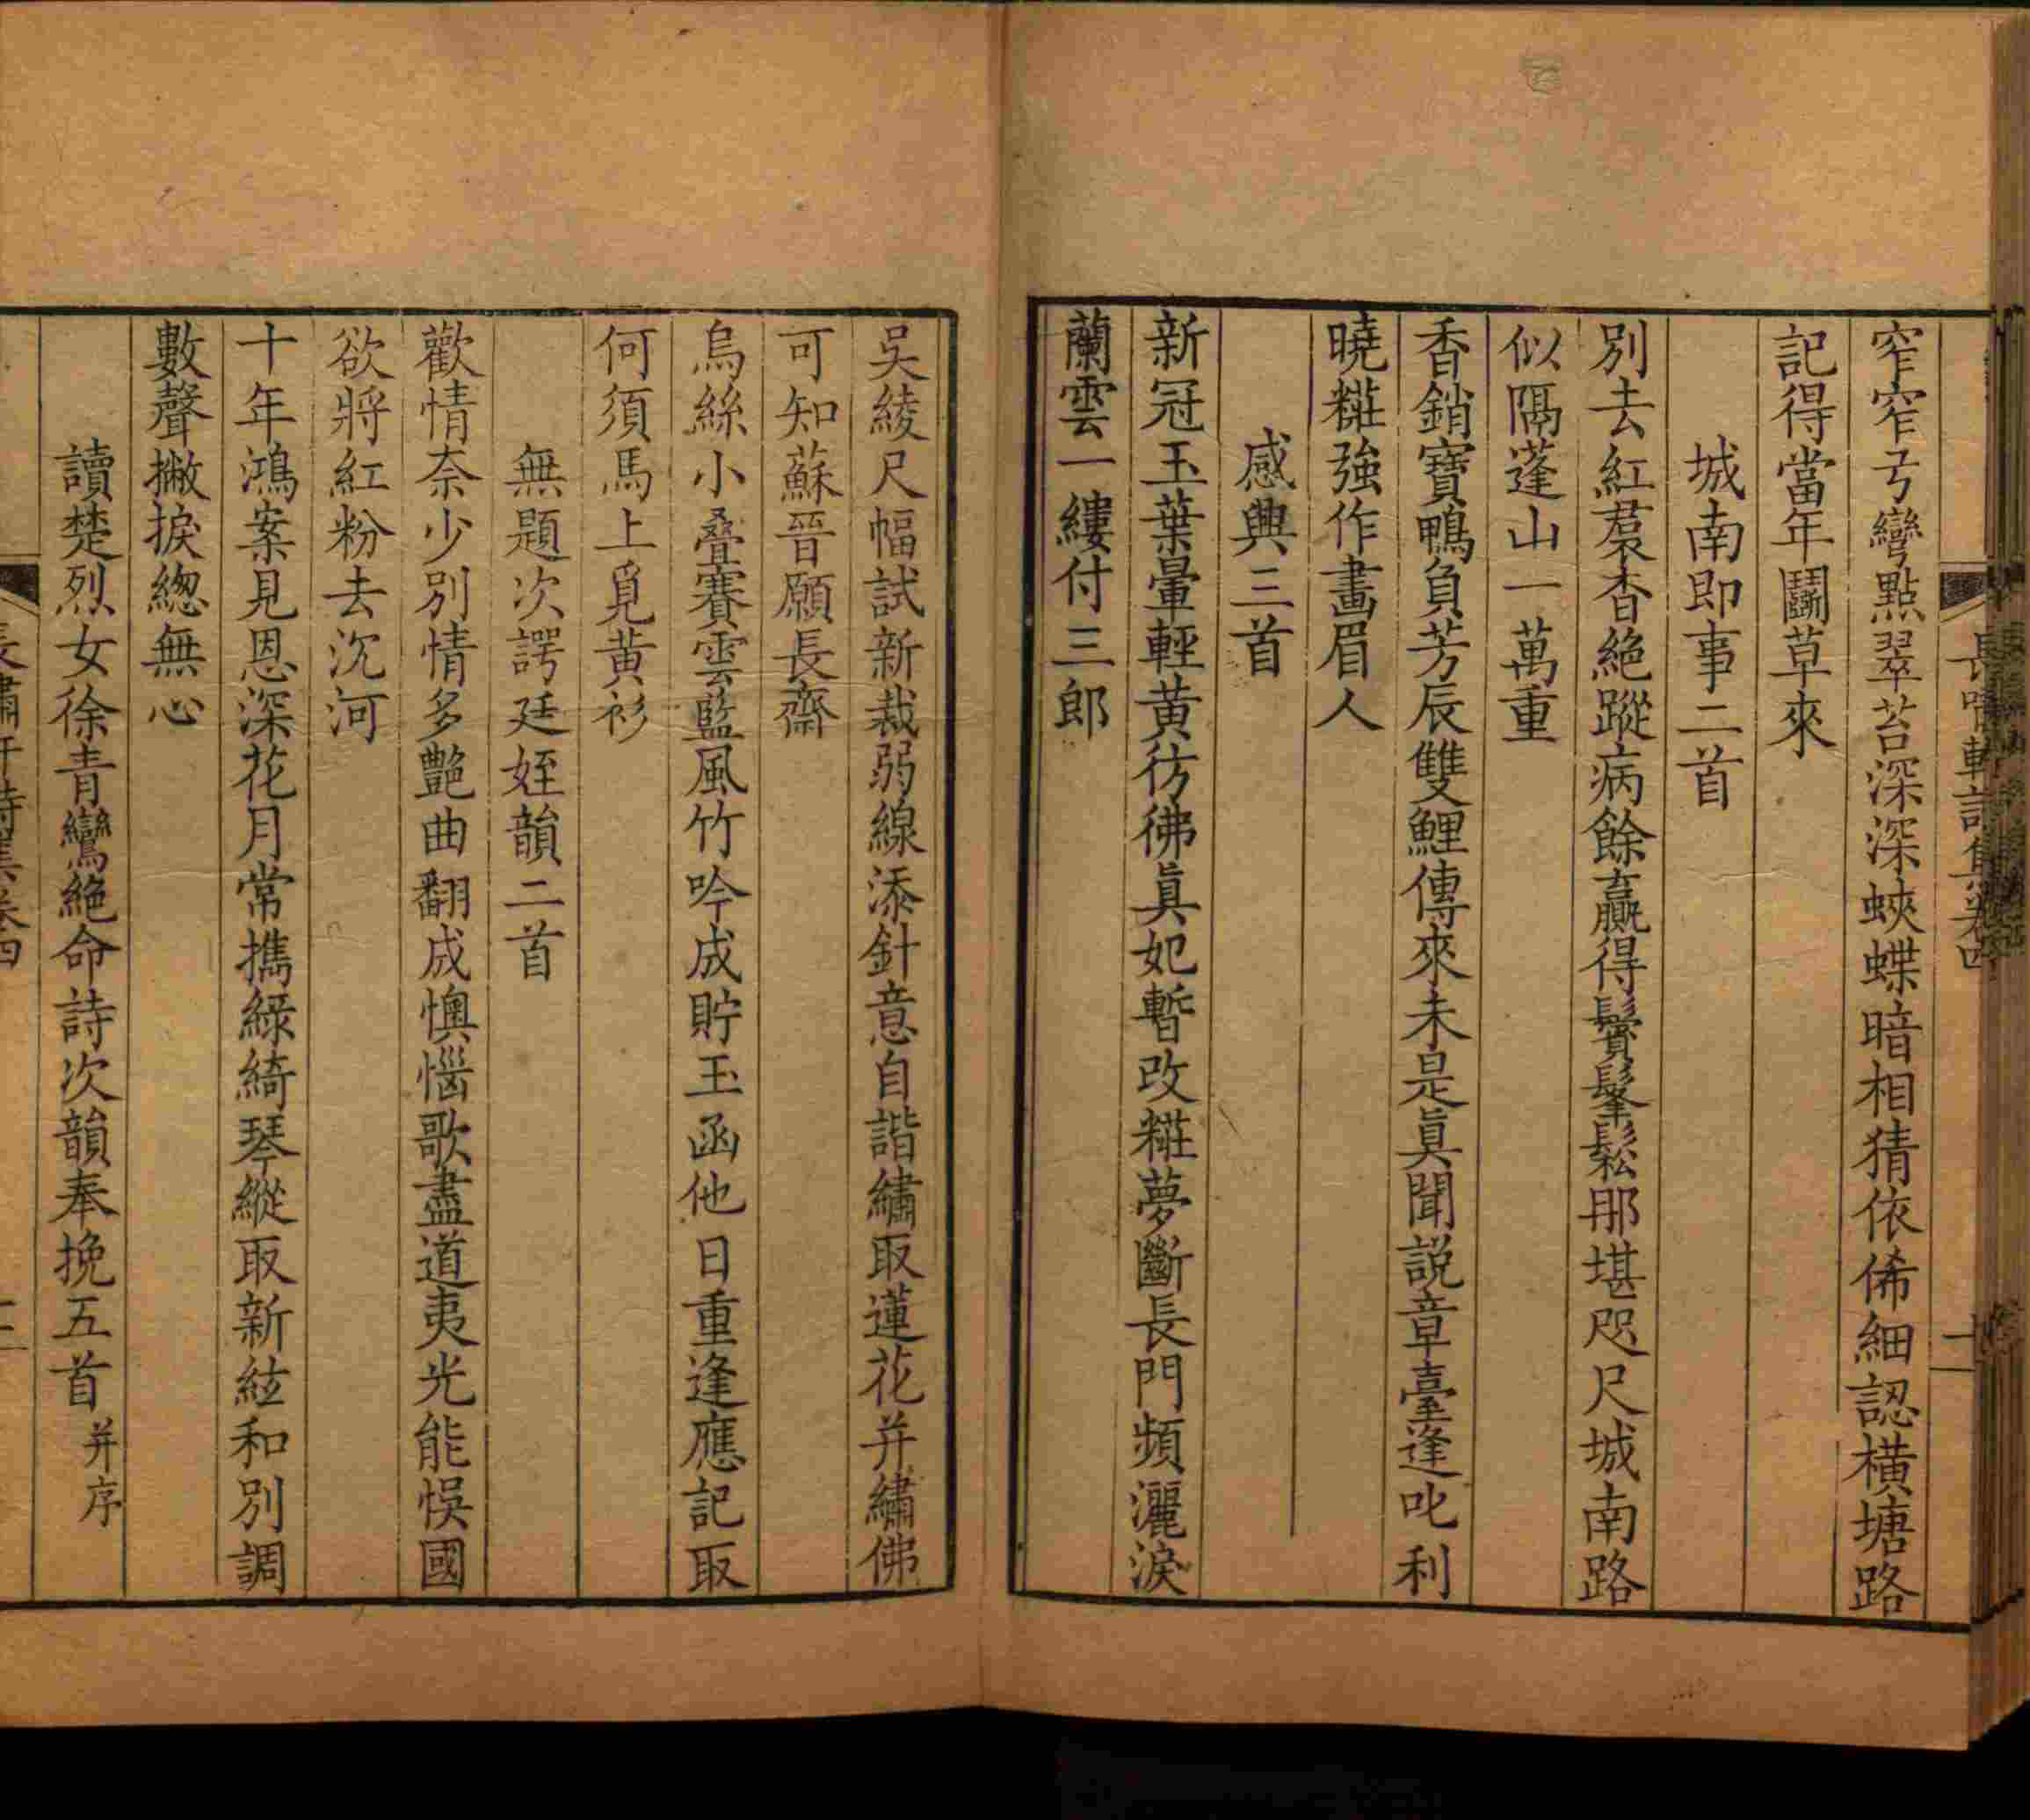 長嘯軒詩集卷四
窄窄弓彎點翠苔深深蛺蝶暗相猜依俙細認橫塘路
記得當年鬭草來
城南即事二首
別去紅裠杳絕蹤病餘贏得鬢鬖鬆那堪咫尺城南路
似隔蓬山一萬重
香銷寶鴨負芳辰雙鯉傳來未是眞聞説章臺逢叱利
曉糚強作畫眉人
感興三首
新冠玉葉暈輕黃彷彿眞妃暫改糚夢斷長門頻灑淚
蘭雲一縷付三郎
吳綾尺幅試新裁弱線添針意自諧繡取蓮花并繡佛
可知蘇晉願長齋
烏絲小疊賽雲藍風竹吟成貯玉函他日重逢應記取
何須馬上覓黃衫
無題次諤廷姪韻二首
歡情奈少別情多艷曲翻成懊惱歌盡道夷光能悮國
欲將紅粉去沉河
十年鴻案見恩深花月常攜綠綺琴縱取新絃和別調
數聲撇捩緫無心
讀楚烈女徐青鸞絕命詩次韻奉挽五首 并序
長嘯軒詩集卷四